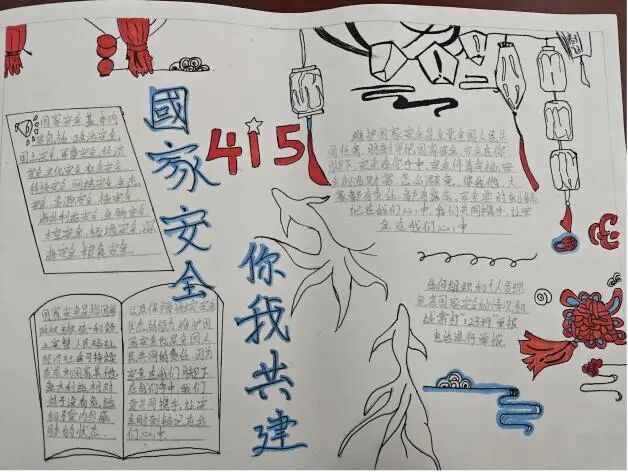 國家安全
你我共建
415
国家安全基本内
容包括:政治安全,
国土安全,军事安全,经济
安全,文化安全,社会安全,
科技安全,网络安全,生态
安全,资源安全,核安全,
海外利益安全,生物安全,
太空安全,极地安全,深
海安全
维护国家安全是全国人民共
同任务,时刻牢记国家安全在你
我脚下,安全在你手中
我们共同携手,让安
全在我们心中
任何组织和个人发现
危害国家安全的情况和
线索打12339举报
电话进行举报.
国家安全是指国家
政权主权统一和领
土完整人民福祉
经济社会可持续
发展和国家其他
重大利益相对
处于没有危险
和不受内外威
胁的状态.
以及保障持续安全
状态的能力,维护国
家安全也是全国人
民共同的责任,因为
安全在我们脚下
在我们手中,我们
要共同携手,让安
全时刻铭记在我
们心中